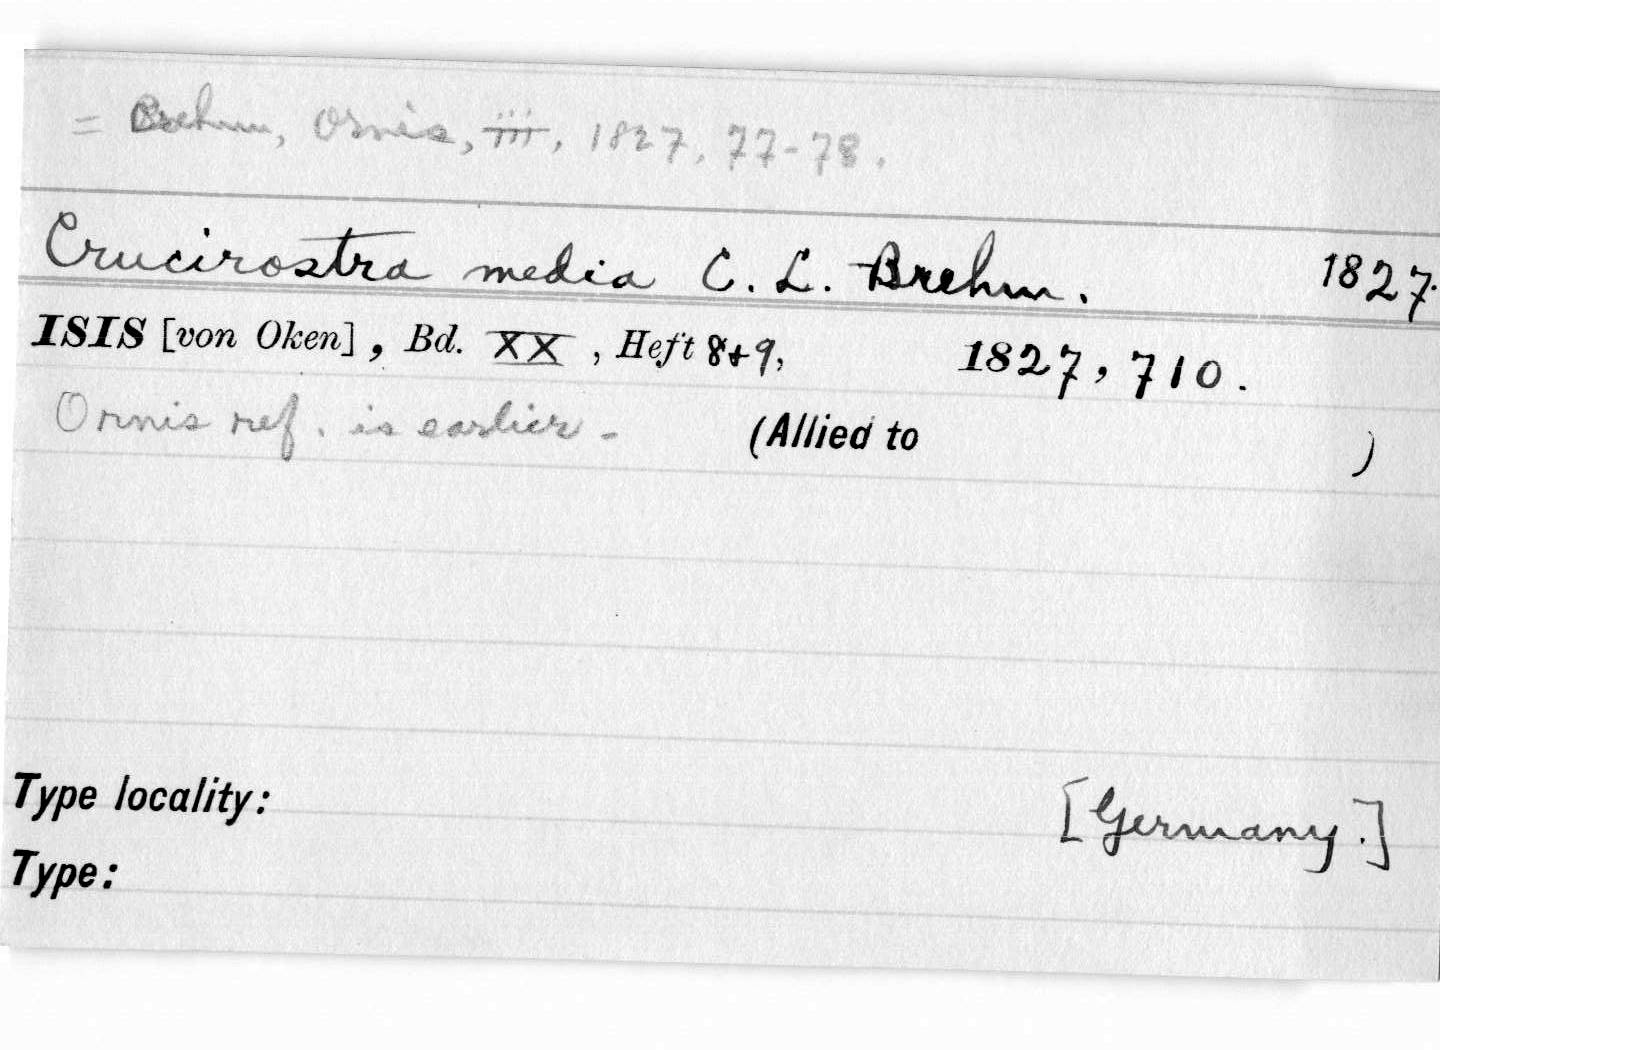 = Brehm, Ornis, iii, 1827, 77-78.
Crucirostra media C. L. Brehm. 1827.
ISIS [von Oken], Bd. XX, Heft 8+9, 1827, 710.
Ornis ref. is earlier - (Allied to )
Type locality: [Germany.]
Type: